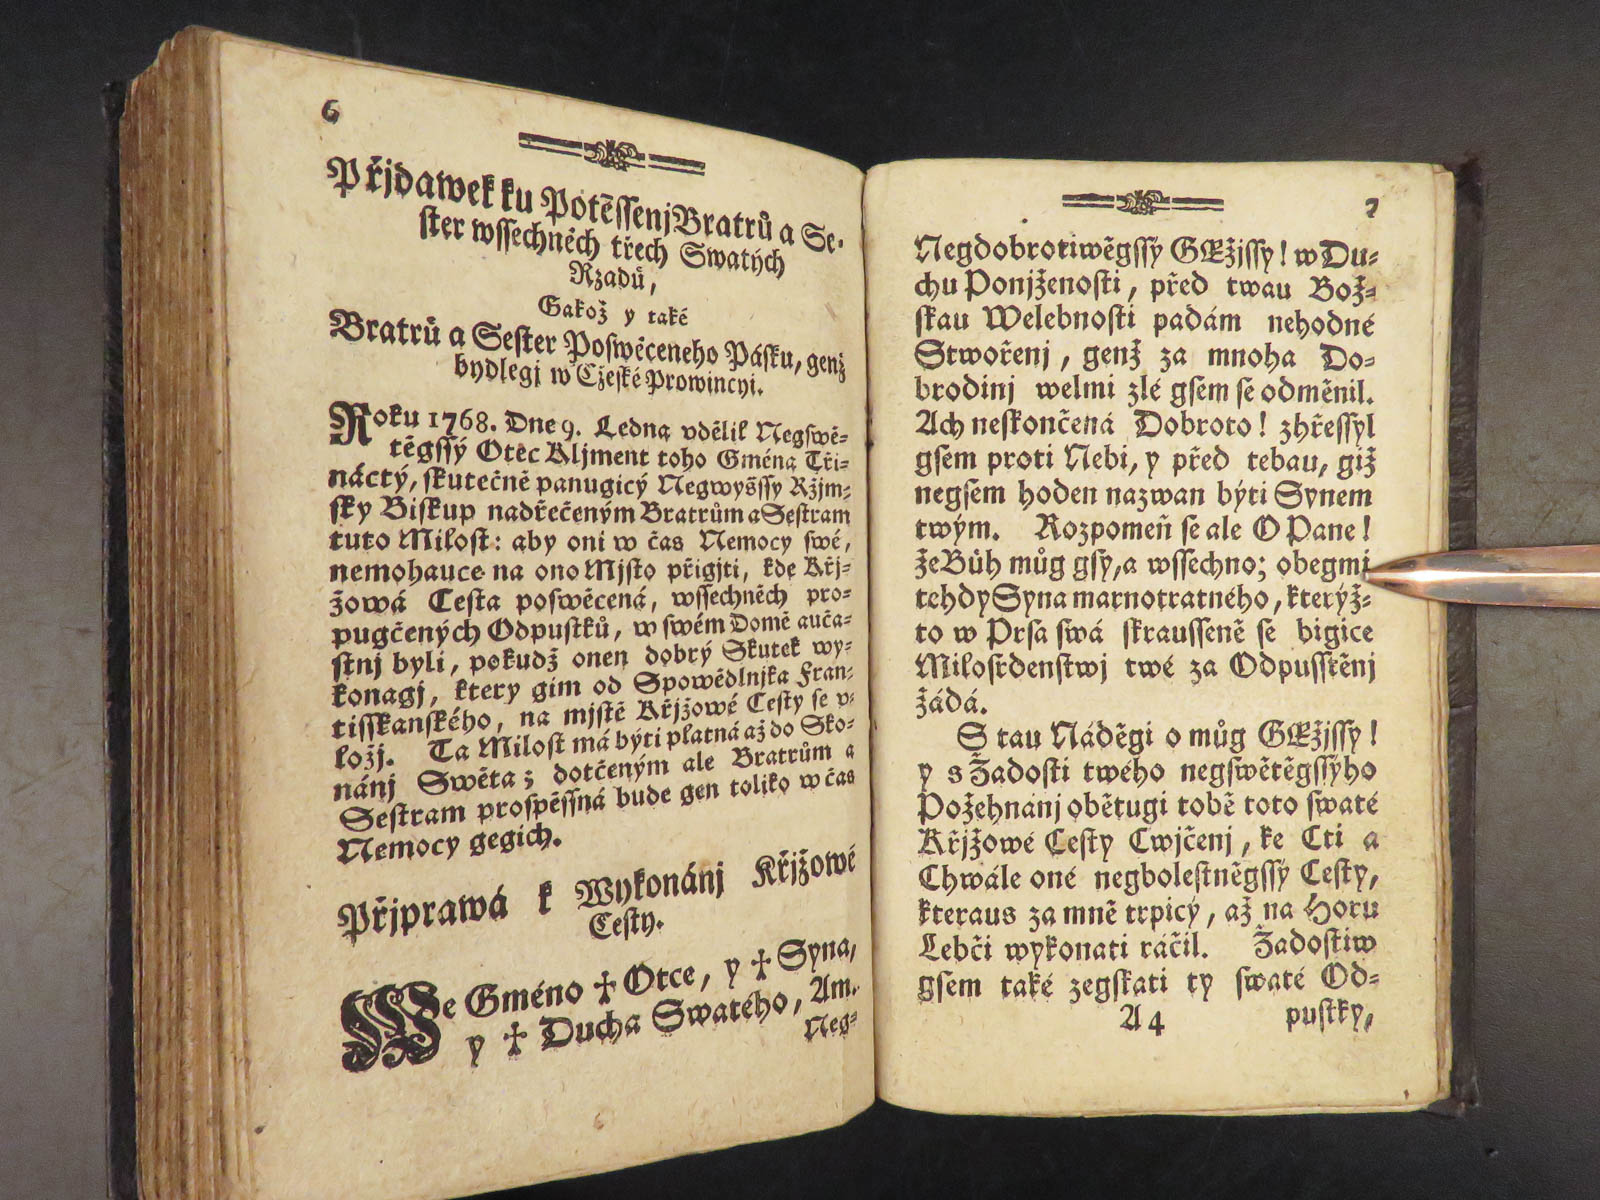 6
Přjdawek ku Potěssenj Bratrů a Se-
ster wssechněch třech Swatých
Rzadů,
Gakož y také
Bratrů a Sester Poswěceneho Pásku, genž
bydlegj w Cžeské Prowincyi.
Roku 1768. Dne 9. Ledna vdělil Negswě-
těgssý Otěc Kljment toho Gména Tři-
náctý, skutečně panugicý Negwyšssy Ržjm-
sky Biskup nadřečeným Bratrům a Sestram
tuto Milost: aby oni w čas Nemocy swé,
nemohauce na ono Mjsto přigjti, kde Křj-
žowá Cesta poswěcená, wssechněch pro-
pugčených Odpustků, w swém Domě auča-
stnj byli, pokudž onen dobrý Skutek wy-
konagj, ktery gim od Spowědlnjka Fran-
tisskanského, na mjstě Křjžowé Cesty se v-
ložj. Ta Milost má býti platná až do Sko-
nánj Swěta; dotčeným ale Bratrům a
Sestram prospěssná bude gen toliko w čas
Nemocy gegich.
Přjprawá k Wykonánj Křjžowé
Cesty.
We Gméno ✝ Otce, y ✝ Syna,
y ✝ Ducha Swatého, Am.
Neg-
7
Negdobrotiwěgssý GEžjssy! w Du-
chu Ponjženosti, před twau Bož-
skau Welebnosti padám nehodné
Stwořenj, genž za mnoha Do-
brodinj welmi zlé gsem se odměnil.
Ach neskončená Dobroto! zhřessyl
gsem proti Nebi, y před tebau, giž
negsem hoden nazwan býti Synem
twým. Rozpomeň se ale O Pane!
že Bůh můg gsy, a wssechno; obegmi
tehdy Syna marnotratného, kterýž-
to w Prsa swá skrausseně se bigice
Milosrdenstwj twé za Odpusstěnj
žádá.
S tau Náděgi o můg GEžjssy!
y s Žadosti twého negswětěgssýho
Požehnánj obětugi tobě toto swaté
Křjžowé Cesty Cwjčenj, ke Cti a
Chwále oné negbolestněgssý Cesty,
kteraus za mně trpicý, až na Horu
Lebči wykonati ráčil. Žadostiw
gsem také zegskati ty swaté Od-
A 4 pustky,